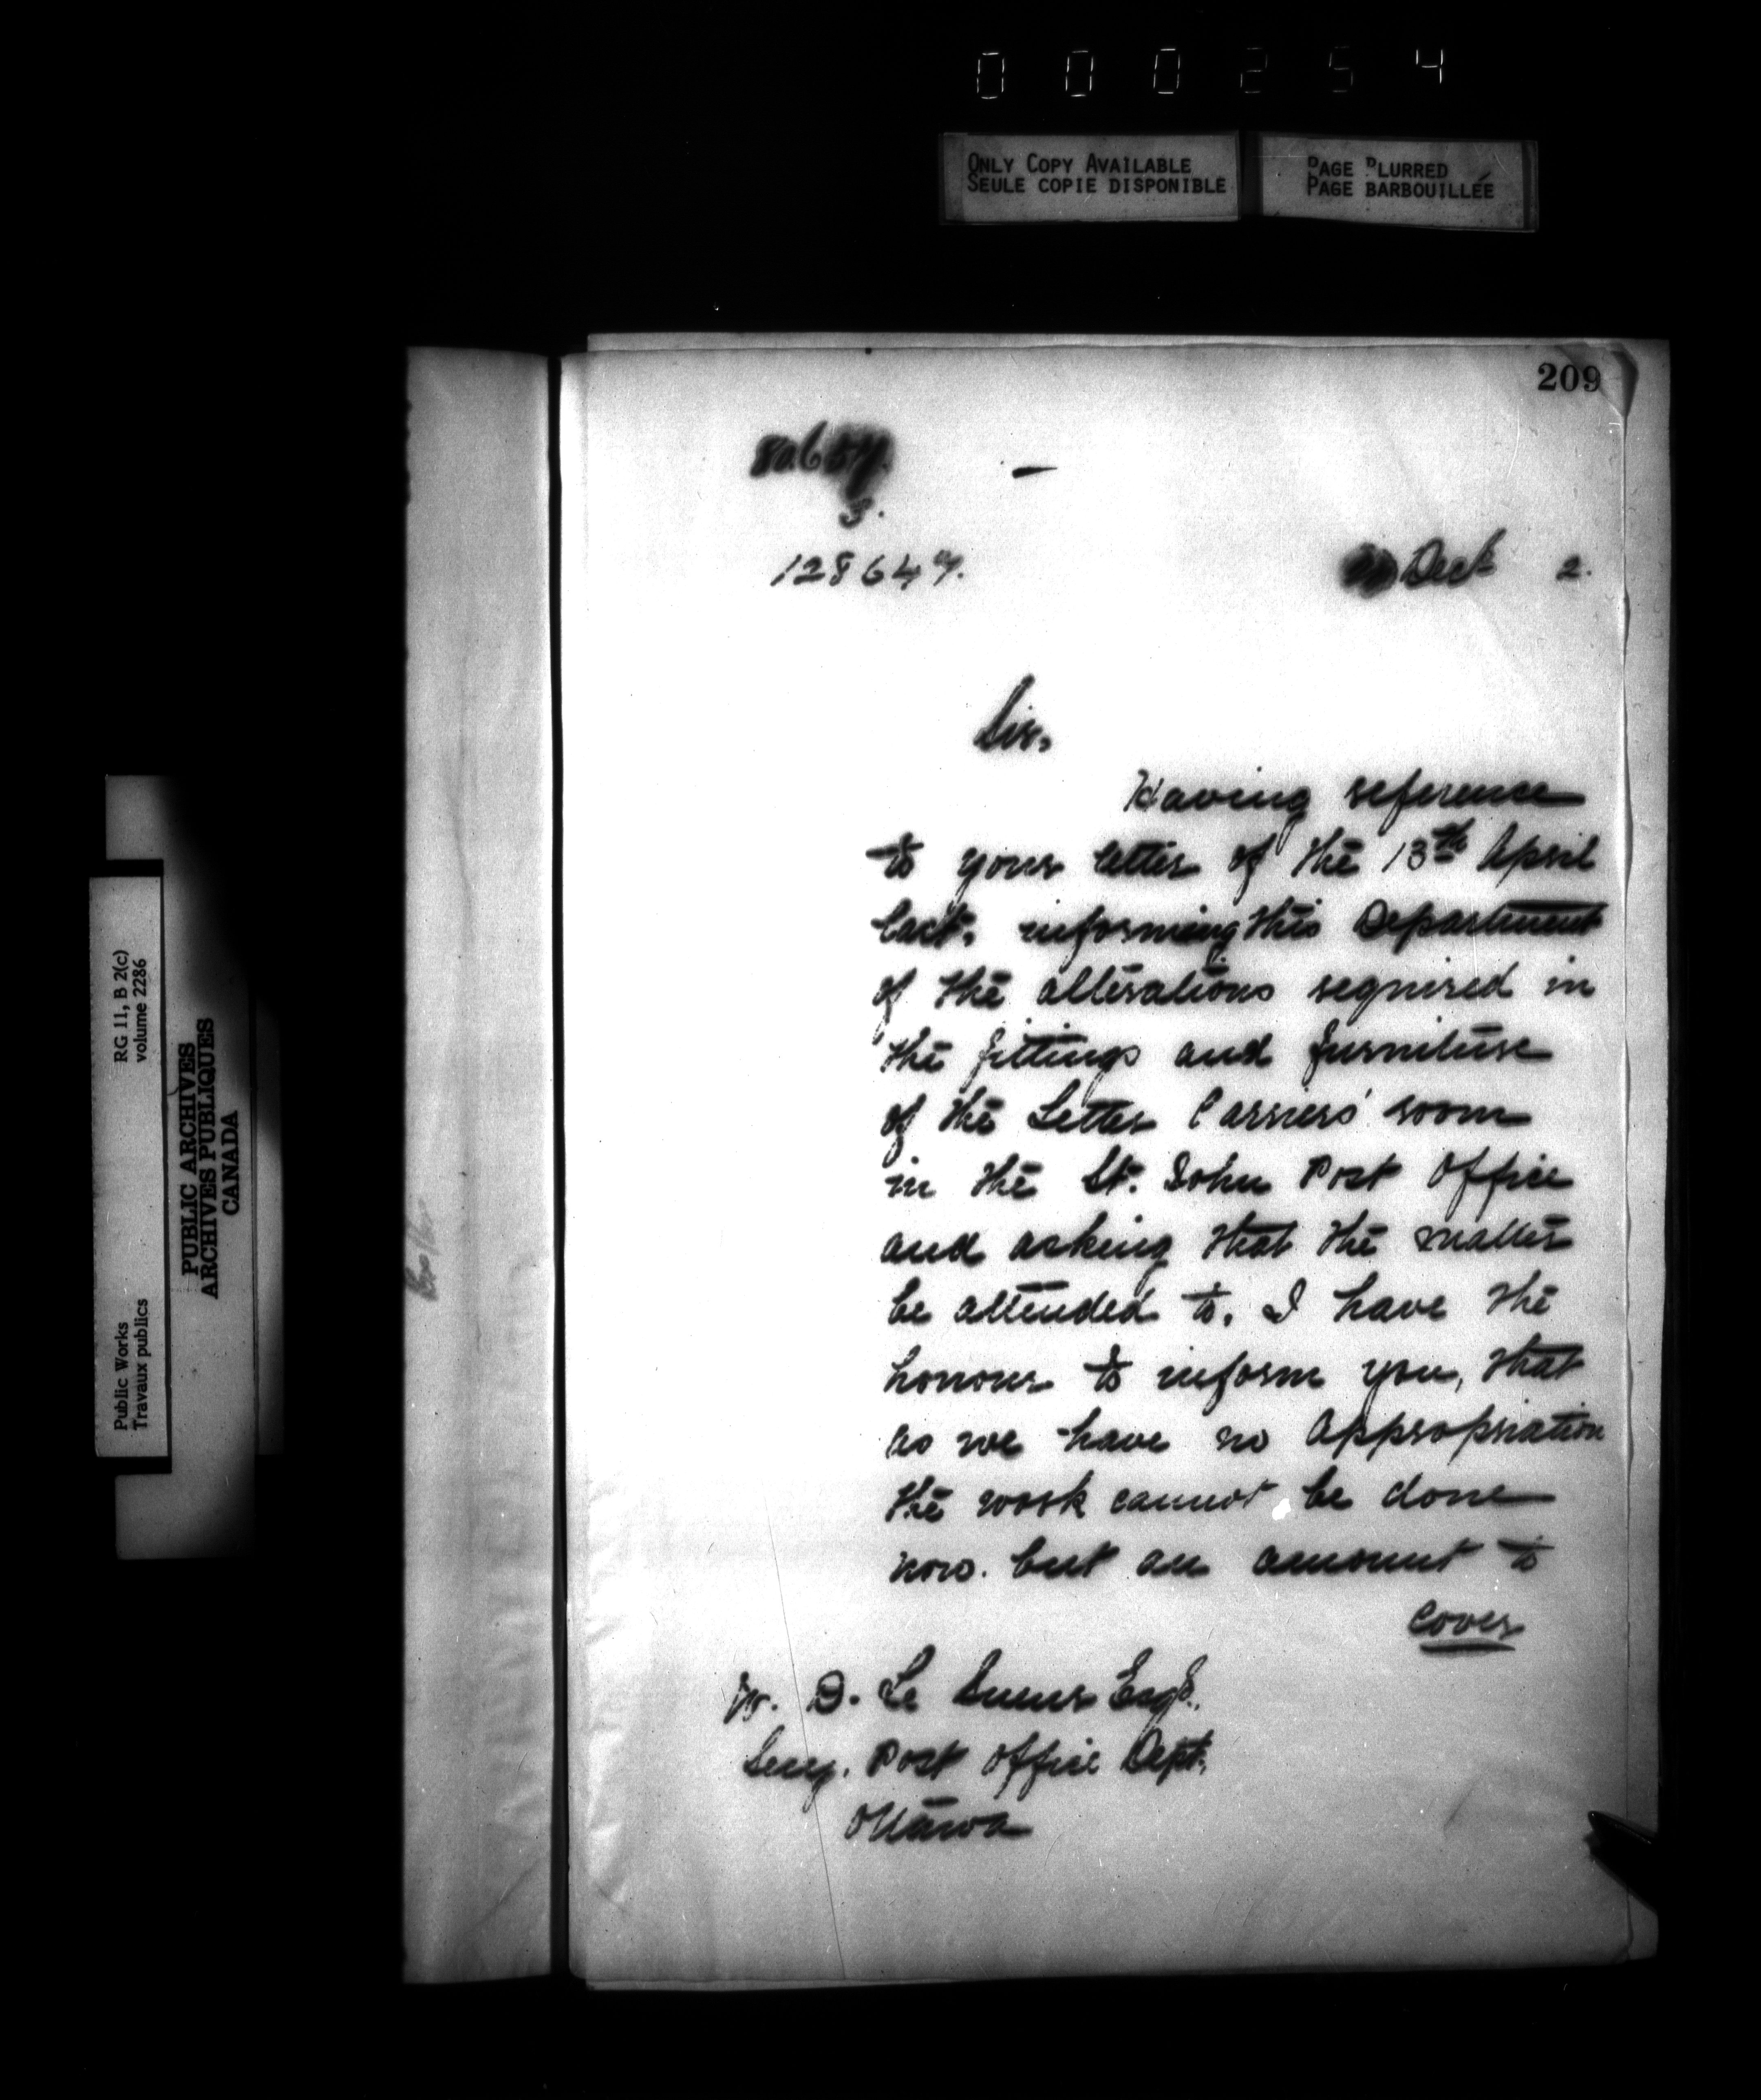 000254
ONLY COPY AVAILABLE
SEULE COPIE DISPONIBLE
PAGE BLURRED
PAGE BARBOUILLÉE
209
3.
128647.
Dec 2.
Sir,
Having reference
to your letter of the 13th April
last, informing this Department
of the alterations required in
the fittings and furniture
of the Letter Carriers' room
in the St. John Post Office
and asking that the matter
be attended to, I have the
honour to inform you, that
as we have no appropriation
the work cannot be done
now. but an amount to
cover
W. D. Le Sueur Esqr.
Secy. Post Office Dept.
Ottawa
Public Works
Travaux publics
RG 11, B 2(c)
volume 2286
PUBLIC ARCHIVES
ARCHIVES PUBLIQUES
CANADA